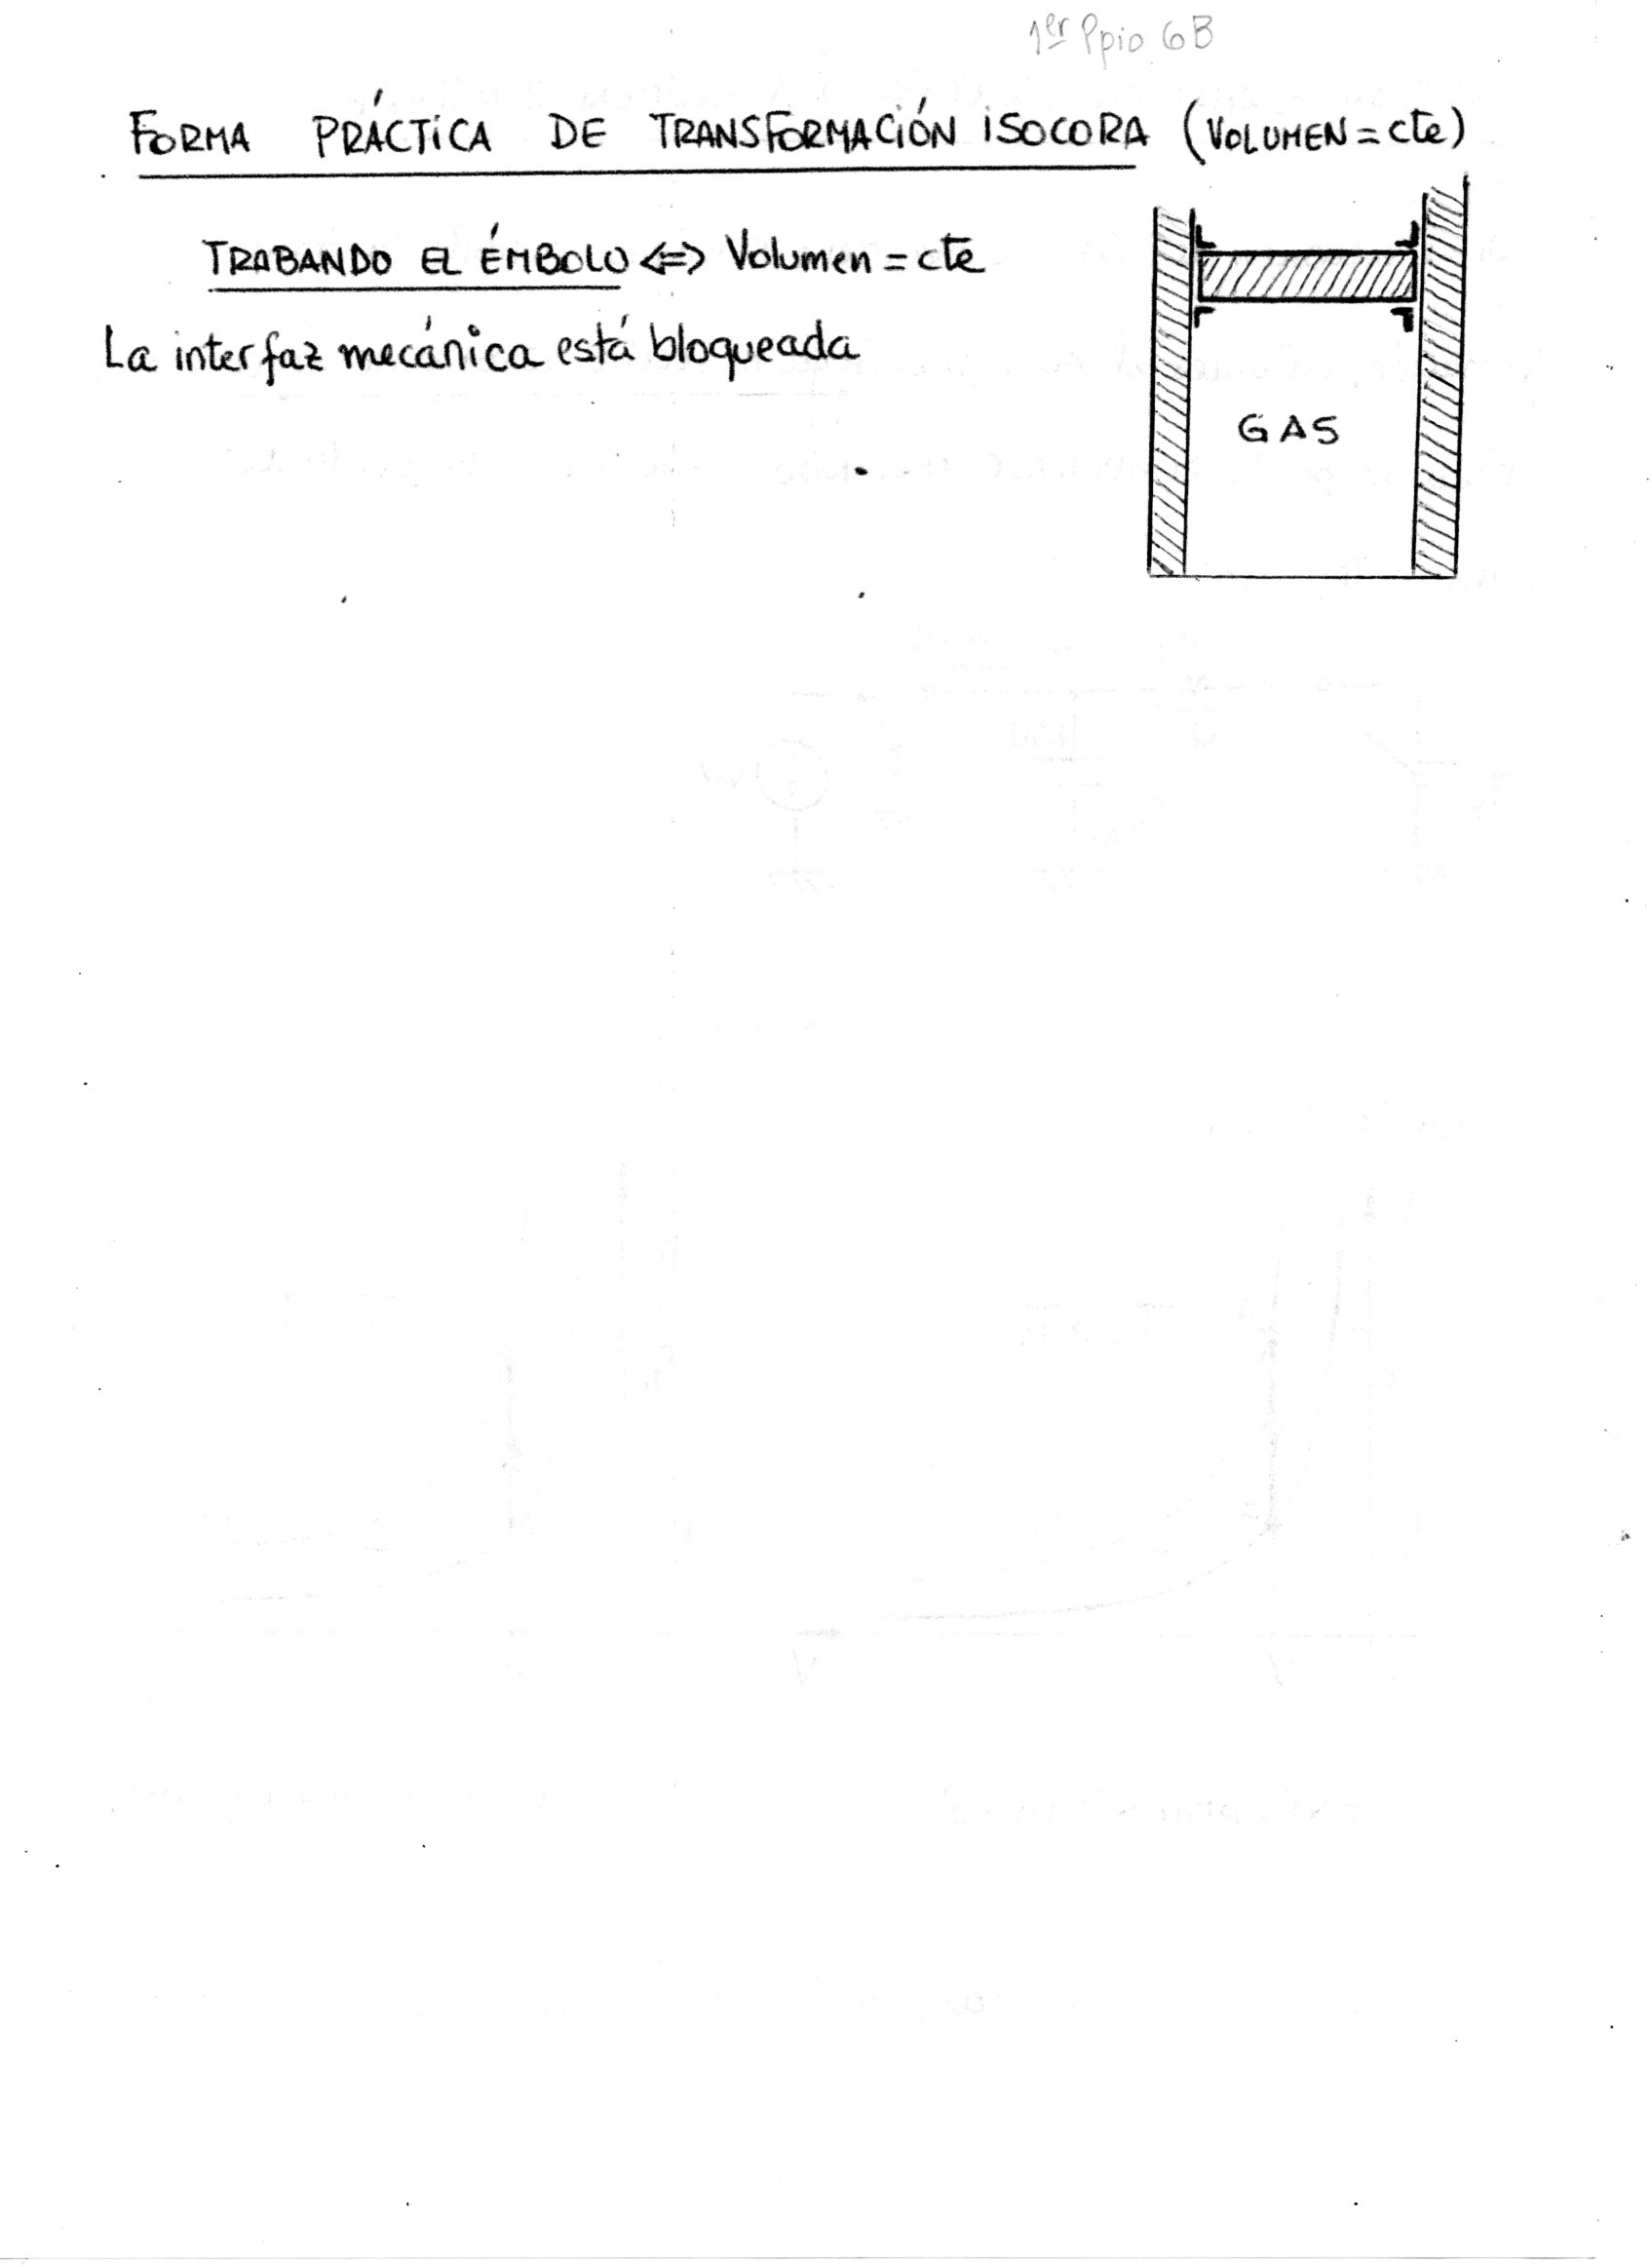 1er Ppio 6B
FORMA PRÁCTICA DE TRANSFORMACIÓN ISOCORA (VOLUMEN = cte)
TRABANDO EL ÉMBOLO <=> Volumen = cte
La interfaz mecánica está bloqueada
GAS